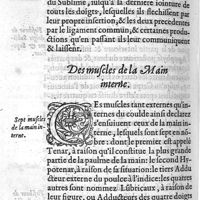 du Sublime, jusqu'à la derniere jointure de
tous les doigts, lesquelles ils flechissent par
leur propre insertion, & les deux precedentes
par le ligament commun, & certaines producti-
ons qu'en passant ils leur communiquent
& laissent.
Des muscles de la Main
interne.
Sept muscles
de la main in-
terne.
CEs muscles tant externes qu'in-
ternes du coulde ainsi declarez
s'ensuiuent ceux de la main in-
terne, lesquels sont sept en nō-
bre: dont le premier est appellé
Tenar, à raison qu'il constitue la plus grande
partie de la paulme de la main: le second Hy-
potenar, à raison de sa situation: le tiers Addu-
cteur externe du poulce à l'indice: les quatre
autres sont nommez Lubricaux, à raison de
leur figure, ou Adducteurs des quatre doigts